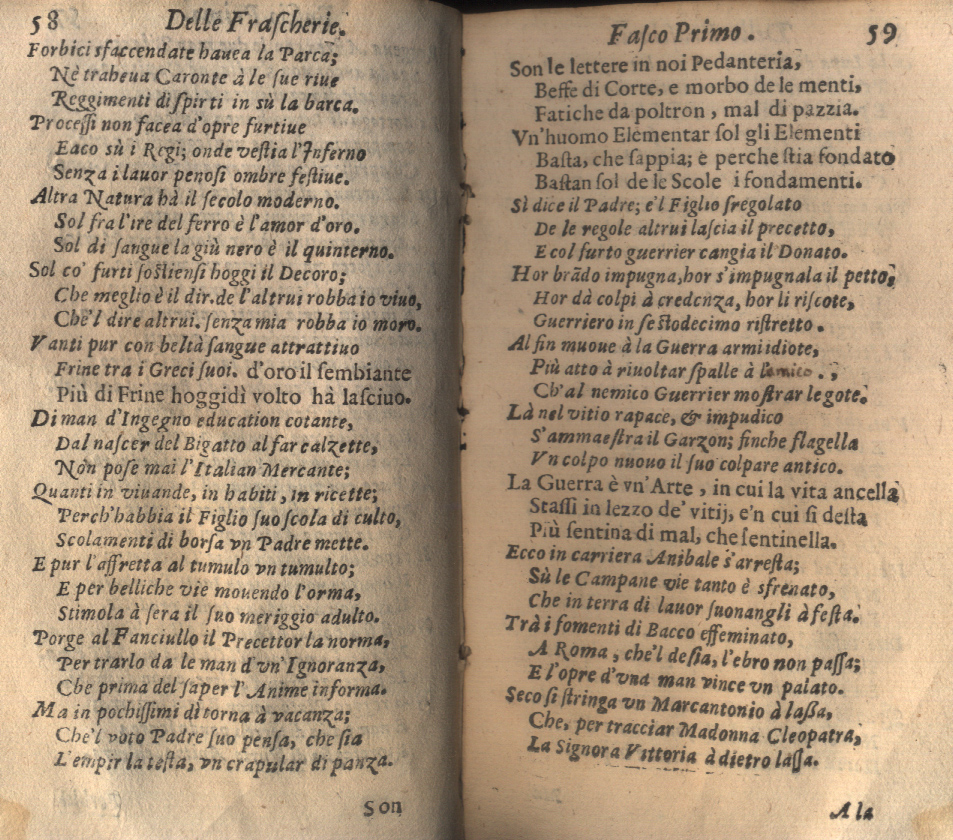 58 Delle Fraſcherie.
Forbici sfaccendate hauea la Parca;
Nè traheua Caronte à le ſue riue
Reggimenti di ſpirti in sù la barca.
Proceſſi non facea d'opre furtiue
Eaco sù i Regi; onde veſtia l'Inferno
Senza i lauor penoſi ombre feſtiue.
Altra Natura hà il ſecolo moderno.
Sol fra l'ire del ferro è l'amor d'oro.
Sol di ſangue la giù nero è il quinterno.
Sol co' furti ſoſtienſi hoggi il Decoro;
Che meglio è il dir. de l'altrui robba io viuo,
Che'l dire altrui. ſenza mia robba io moro.
Vanti pur con beltà ſangue attrattiuo
Frine tra i Greci ſuoi. d'oro il ſembiante
Più di Frine hoggidì volto hà laſciuo.
Di man d'Ingegno education cotante,
Dal naſcer del Bigatto al far calzette,
Non poſe mai l'Italian Mercante;
Quanti in viuande, in habiti, in ricette;
Perch'habbia il Figlio ſuo ſcola di culto,
Scolamenti di borſa vn Padre mette.
E pur l'affretta al tumulo vn tumulto;
E per belliche vie mouendo l'orma,
Stimola à ſera il ſuo meriggio adulto.
Porge al Fanciullo il Precettor la norma,
Per trarlo da le man d'vn'Ignoranza,
Che prima del ſaper l'Anime informa.
Ma in pochiſſimi dì torna à vacanza;
Che'l voto Padre ſuo penſa, che ſia
L'empir la teſta, vn crapular di panza.
Son
Faſco Primo. 59
Son le lettere in noi Pedanteria,
Beffe di Corte, e morbo de le menti,
Fatiche da poltron, mal di pazzia.
Vn'huomo Elementar ſol gli Elementi
Baſta, che ſappia; e perche ſtia fondato
Baſtan ſol de le Scole i fondamenti.
Sì dice il Padre; e'l Figlio ſregolato
De le regole altrui laſcia il precetto,
E col furto guerrier cangia il Donato.
Hor brãdo impugna, hor s'impugnala il petto,
Hor dà colpi à credenza, hor li riſcote,
Guerriero in ſeſtodecimo riſtretto.
Al fin muoue à la Guerra armi idiote,
Più atto à riuoltar ſpalle à l'amico.,
Ch'al nemico Guerrier moſtrar le gote.
Là nel vitio rapace, & impudico
S'ammaeſtra il Garzon; finche flagella
Vn colpo nuouo il ſuo colpare antico.
La Guerra è vn'Arte, in cui la vita ancella
Staſſi in lezzo de' vitij, e'n cui ſi deſta
Più ſentina di mal, che ſentinella.
Ecco in carriera Anibale s'arreſta;
Sù le Campane vie tanto è sfrenato,
Che in terra di lauor ſuonangli à feſta.
Trà i fomenti di Bacco effeminato,
A Roma, che'l deſia, l'ebro non paſſa;
E l'opre d'vna man vince vn palato.
Seco ſi ſtringa vn Marcantonio à laßa,
Che, per tracciar Madonna Cleopatra,
La Signora Vittoria à dietro laſſa.
A la